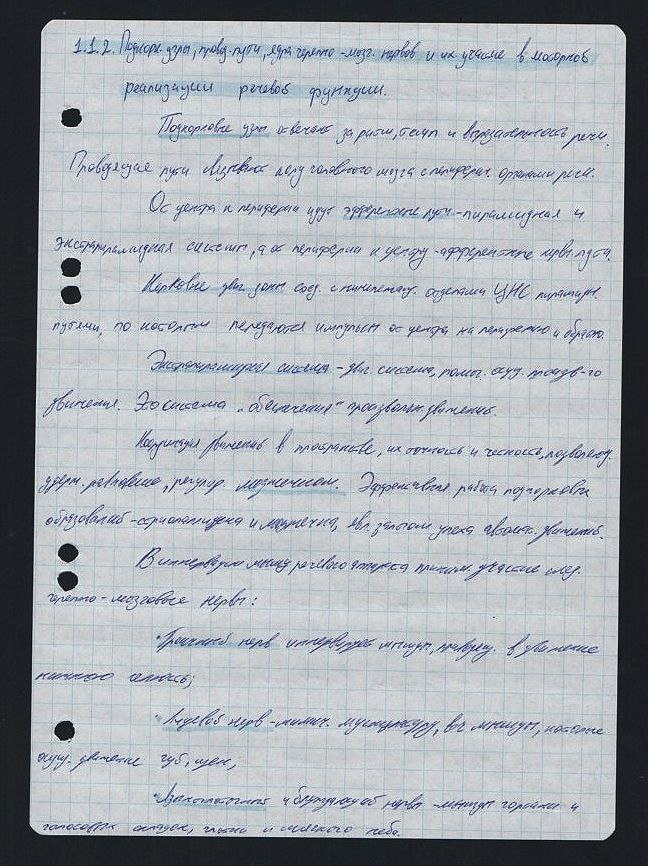 1.1.2. Подкорк. узлы, провод. пути, ядра черепно-мозг. нервов и их участие в моторной
реализации речевой функции.
Подкорковые узлы отвечают за ритм, темп и выразительность речи.
Проводящие пути связывают кору головного мозга с перифер. органами речи.
От центра к периферии идут эфферентные пути - пирамидная и
экстрапирамидная системы, а от периферии к центру - афферентные нервн. пути.
Корковые двиг. зоны соед. с отделами ЦНС пирамидн.
путями, по которым передаются импульсы от центра на периферию и обратно.
Экстрапирамидная система - двиг. система, помог. осущ. произв-го
движения. Это система "обеспечения" произвольн. движений.
Координация движений в пространстве, их точность и четкость, позволяющ.
удерж. равновесие, регулир. мозжечком. Эффективная работа подкорковых
образований - стриопаллидума и мозжечка, явл. залогом успеха движений.
В иннервации мышц речевого аппарата приним. участие след.
черепно-мозговые нервы:
•Тройничный нерв иннервирует мышцы, приводящ. в движение
нижнюю челюсть;
•Лицевой нерв - мимич. мускулатуру, вкл. мышцы, которые
осущ. движение губ, щек;
•Языкоглоточный и блуждающий нервы - мышцы гортани и
голосовых складок, глотки и мягкого неба.